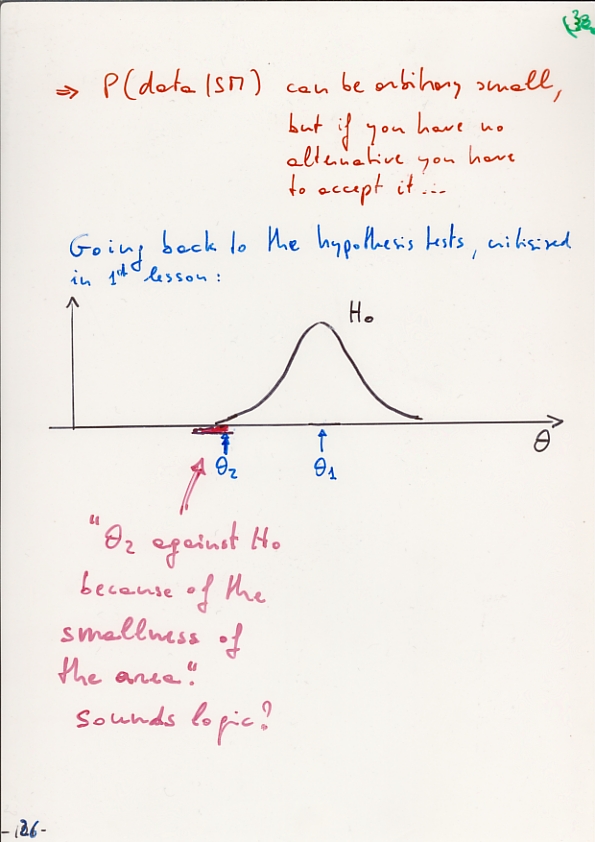 (38
⇒ P(data|SM) can be arbitrary small,
but if you have no
alternative you have
to accept it...
Going back to the hypothesis tests, critisized
in 1st lesson:
H₀
θ
θ₂ θ₁
"θ₂ against H₀
because of the
smallness of
the area".
sounds logic?